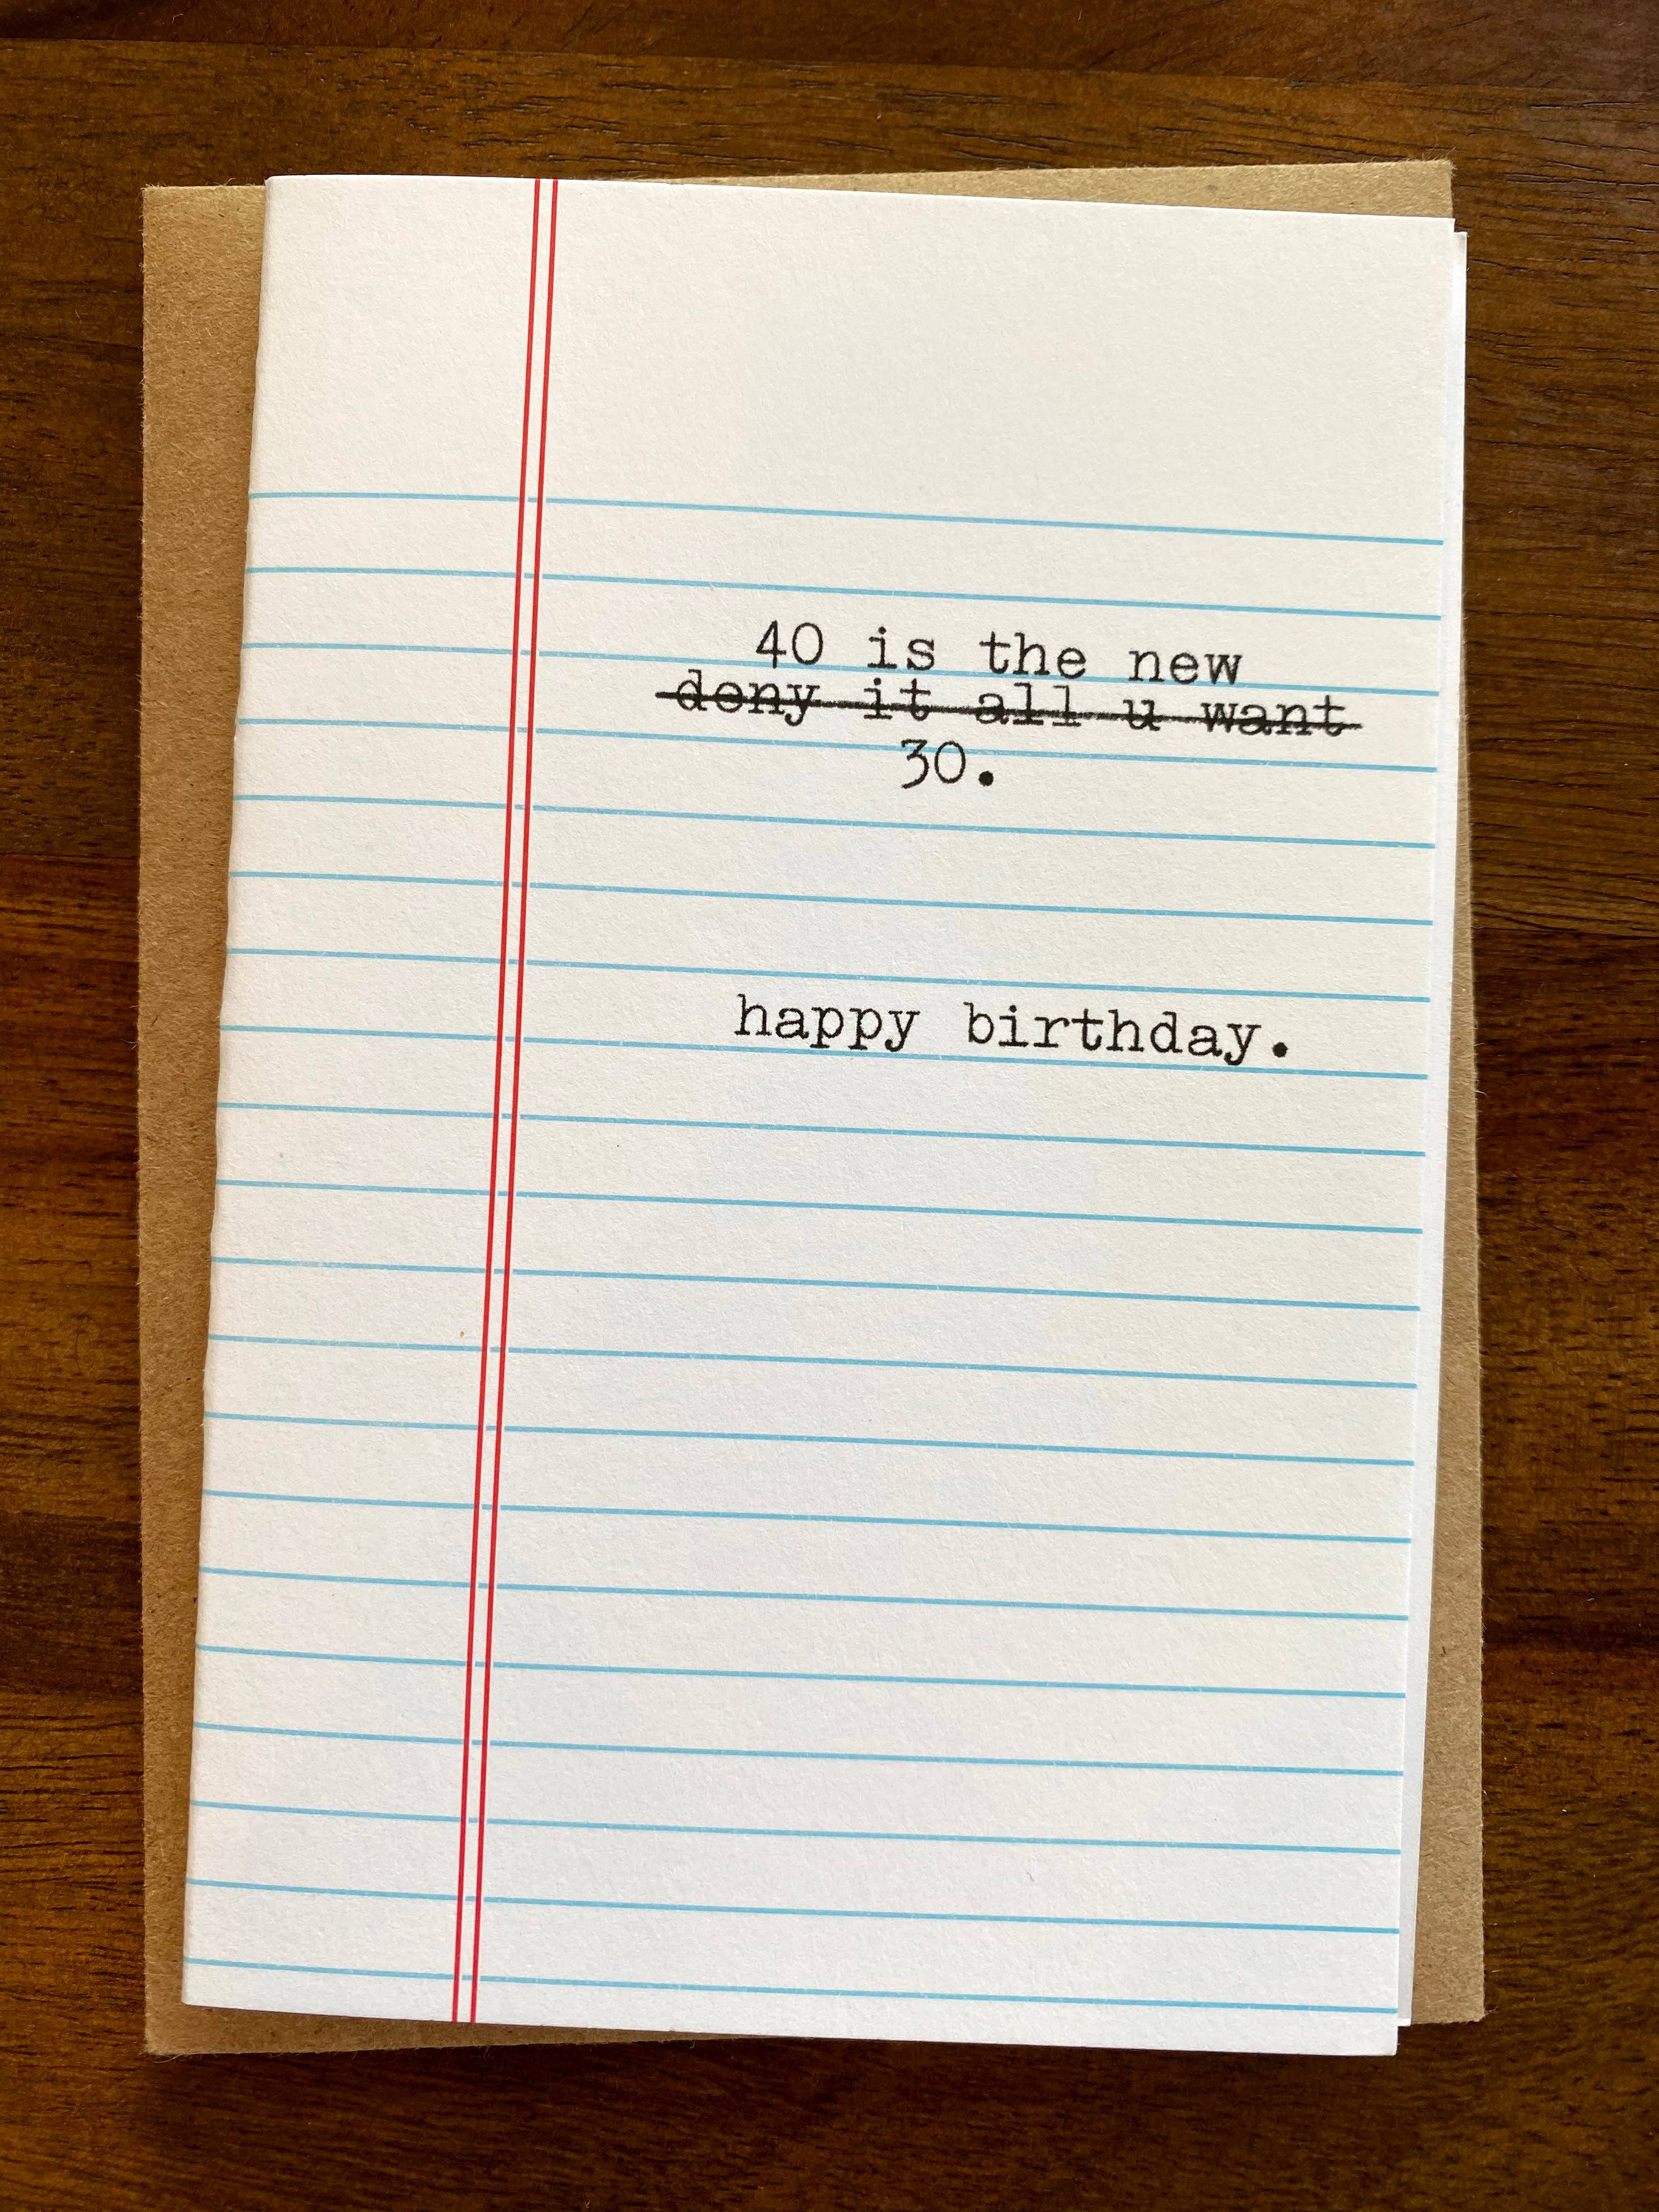 40 is the new
deny it all u want
30.
happy birthday.